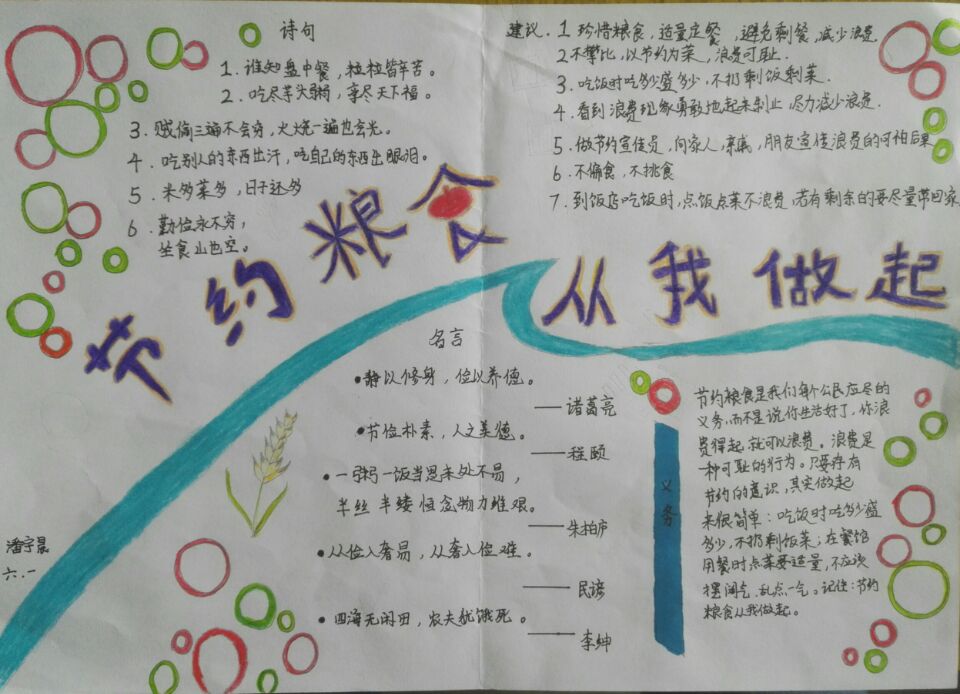 诗句
1. 谁知盘中餐，粒粒皆辛苦。
2. 吃尽芋头粥，享尽天下福。
3. 贼偷三遍不会穷，火烧一遍也玄光。
4. 吃别人的东西出汗，吃自己的东西出眼泪。
5 米多菜多，日子还多
6. 勤俭永不穷，
坐食山也空。
建议.
1 珍惜粮食，适量定餐，避免剩餐，减少浪费
2 不攀比，以节约为荣，浪费可耻.
3. 吃饭时吃多少盛多少，不扔剩饭剩菜.
4. 看到浪费现象勇敢地起来制止，尽力减少浪费.
5. 做节约宣传员，向家人，亲戚，朋友宣传浪费的可怕后果
6. 不偏食，不挑食
7. 到饭店吃饭时，点饭点菜不浪费，若有剩余的要尽量带回家
节约粮食
从我做起
名言
•静以修身，俭以养德。
——诸葛亮
•节俭朴素，人之美德。
——程颐
•一粥一饭当思来处不易，
半丝半缕恒念物力维艰。
——朱柏庐
•从俭入奢易，从奢入俭难。
——民谚
•四海无闲田，农夫犹饿死。
——李绅
义务
节约粮食是我们每个公民应尽的
义务，而不是说你生活好了，你浪
费得起，就可以浪费。浪费是
一种可耻的行为。只要存有
节约的意识，其实做起
来很简单：吃饭时吃多少盛
多少，不扔剩饭菜；在餐馆
用餐时点菜要适量，不应该
摆阔气，乱点一气。记住：节约
粮食从我做起。
潘宇晨
六.一